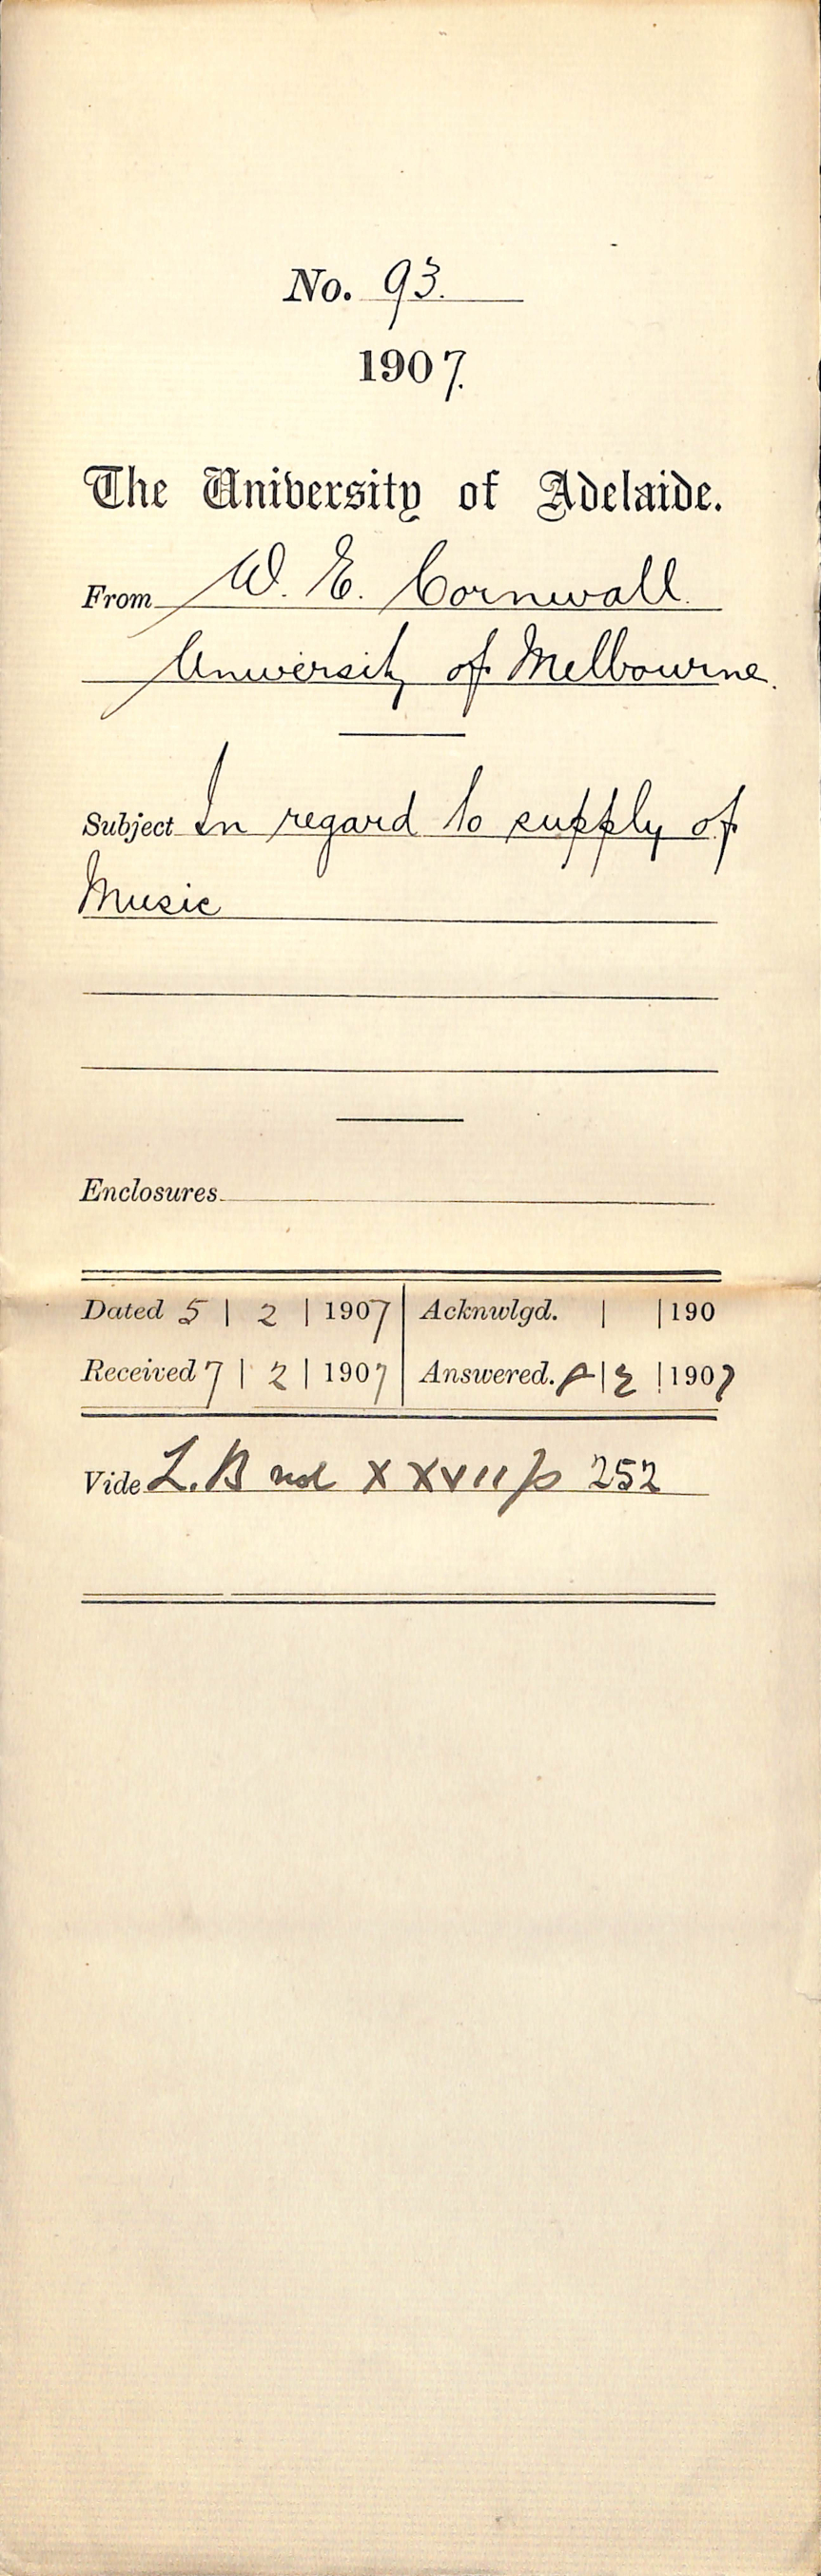 No. 93.
1907.
The University of Adelaide.
From W. E. Cornwall
University of Melbourne.
Subject In regard to supply of
Music
Enclosures
Dated 5 | 2 | 1907 | Acknwlgd. | | 190
Received 7 | 2 | 1907 | Answered. | 2 | 1907
Vide L.B vol XXVII p 252